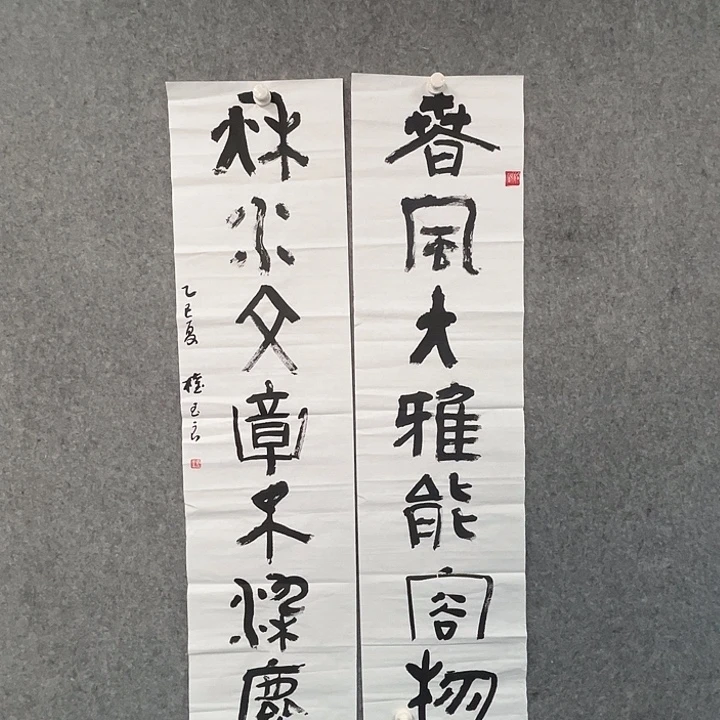 春風大雅能容物
秋水文章不染塵
乙巳夏